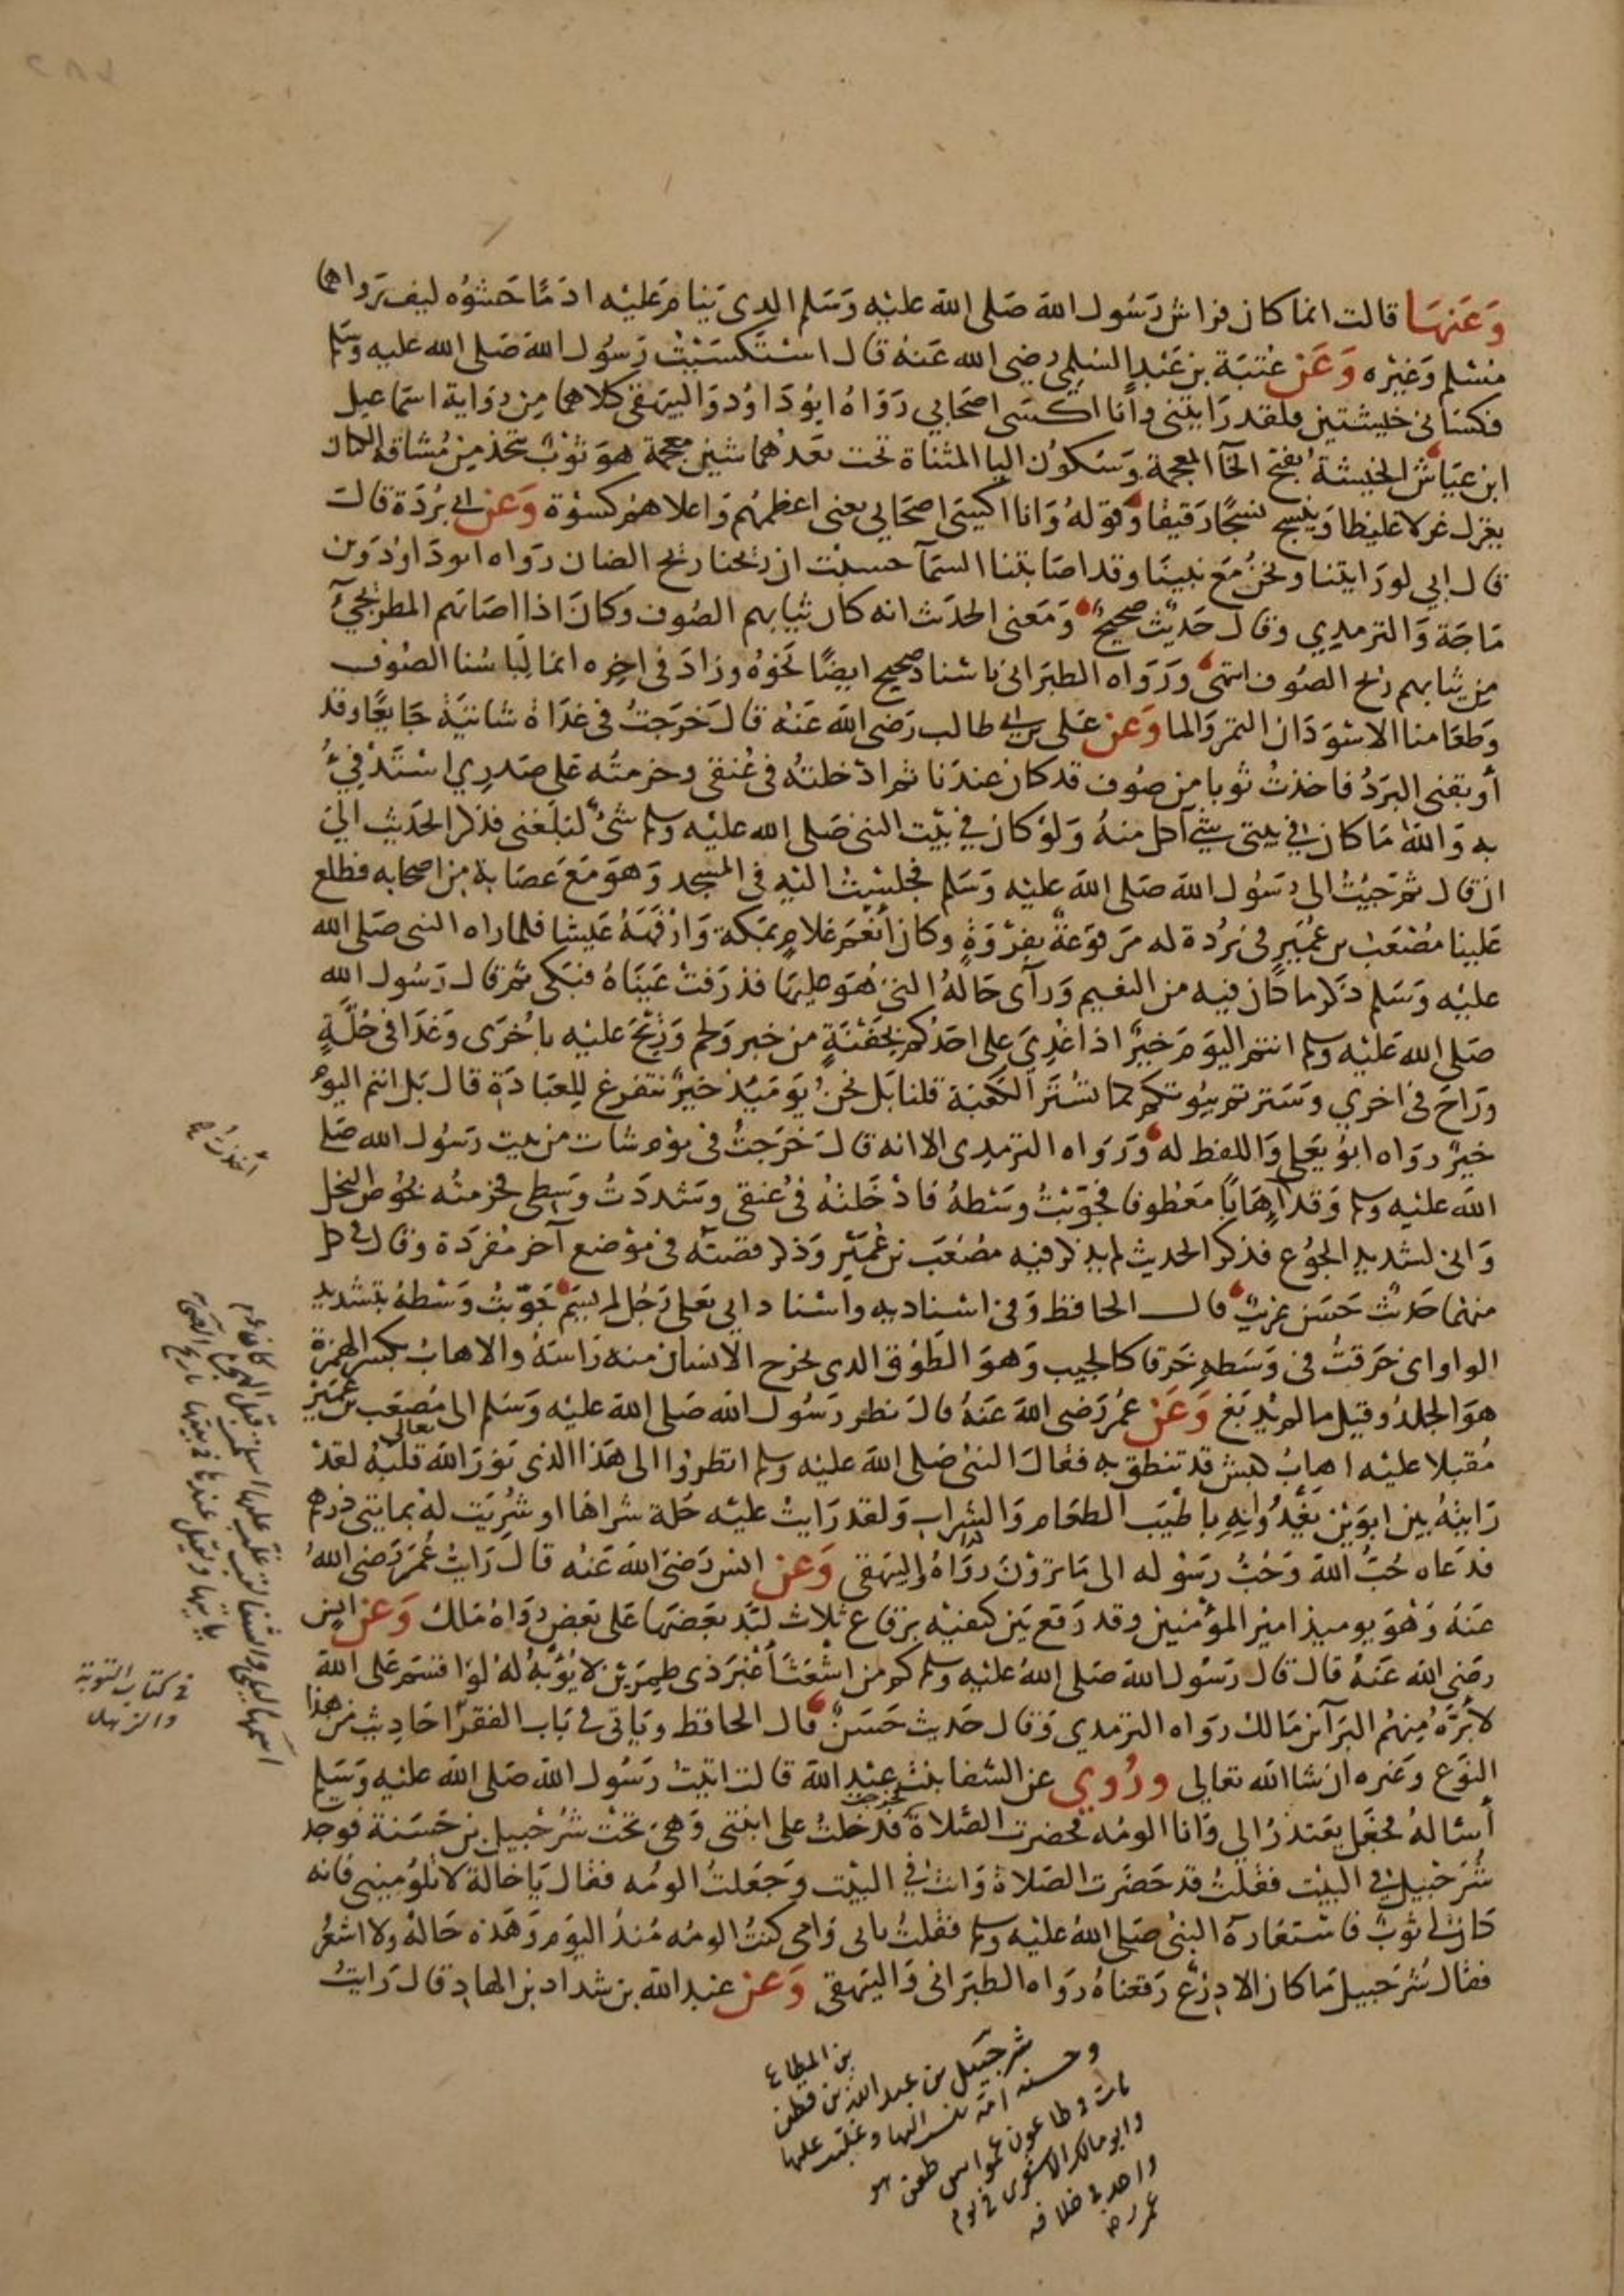 وَعَنهَا قالت انما كان فراش رَسُول الله صَلى الله عليْه وَسَلم الدى يَنامُ عَليْه ادَمًا حَشوُه ليف رَواهما
مُسْلم وَغيْره وَعَنْ عُتبَة بن عَبْدٍ السُلمى رضى الله عَنهُ قال اسْتَكسَيْتُ رَسُول الله صَلى الله عليه وسَلم
فكسَانى خيشتين ولقد رَايتنى وأنا اكسَى اصحَابى رَوَاهُ ابوُدَاوُد وَالبيهَقى كلاهما مِن رواية اسماعيل
ابن عيَاش الخيشة بفتح الخآ المعجمة وَسَكوُن اليا المثناة تحت بَعدَهُما شين معجمة هوَ ثوْبٌ يتخذ مِن مُشاقة الكتان
يغزل غزلا غليظا وَينسج نسْجًا رَقيقا وَقوله وَانا اكسَى اصحَابى يعنى اعظمهُم وَاعلاهم كسْوَة وَعَن ابى بُرْدَة قال
قال ابى لورَايتنا ونحنُ مَعَ نبينَا وقد اصَابتنا السَمآ حسبْت ان ريحنا ريح الضان رَوَاه ابودَاوُد وَبن
مَاجَة وَالترمدِي وقال حَديْث صحيحٌ وَمَعنى الحدَث انه كان ثيابهم الصُوف وكانَ اذا اصَابَهم المطر يجىُٔ
مِن ثيابهم ريْح الصُوف انتهى وَرَوَاه الطبَرانى باسْناد صحيح ايضًا نحَوُهُ وزادَ فى اخِره انما لِبَاسُنا الصُوف
وَطعَامنا الاسْوَدَان التمر وَالما وَعن عَلى بن ابى طالب رَضى الله عَنْه قالَ خرَجتُ فى غدَاة شاتيَة جَايعًا وقد
أوبقنى البَرَدُ فاخذتُ ثوبا من صُوف قد كان عندَنا ثم ادْخلته فى عُنقى وحزمتُه عَلى صَدرِي اسْتَدْفِىُٔ
به وَاللهِ مَا كان فى بيتى شىْ آكل منهُ وَلوْ كان فِي بَيْت النبى صَلى الله عليْه وسلم شىْ لبَلغنى فذكر الحَديْث الى
ان قال ثم جيْتُ الى رسُول الله صَلى الله عَليْه وَسَلم فجلسْتُ اليْه فى المسْجد وَهوَ مَعَ عصَابة من اصحابه فطلع
عَلينا مُصْعَب بن عُمَيْر فى بُرْدة له مَرقوعَةٌ بفَرْوَةٍ وكان أنعَم غلام بمكة وَارْفَهَهُ عَيشا فلما راه النبى صَلى الله
عليْه وَسَلم ذكر ما كان فيه من النعيم وَرآى حَالهُ التى هُوَ عليهَا فذرَفتْ عَينَاهُ فبَكى ثم قال رَسُول الله
صَلى الله عَليْه وسلم انتم اليَومَ خيرٌ ام اذا غدِىَ على احَدكم بجَفْنَةٍ من خبز وَلحم وَرِيْحَ عَليْه باُخرَى وَغَدَا فى حُلّةٍ
ورَاحَ فى اخري وَسَترتم بيُوتكم كما تسْتَر الكعْبَة قلنا بَل نحنُ يَوميَذ خيرٌ نتفرغ للعِبَادَةِ قال بَل انتم اليَومَ
خيرٌ رواه ابوُيَعلى وَاللفظ له وَرَوَاه الترمِدى الا انه قالَ خَرَجتُ فى يوْم شات من بيت رَسُول الله صَلى
الله عليْه وسلم وَقد اهَابًا مَعْطوفا فجوَّبْتُ وسَطهُ فادْخَلتهُ فى عُنقى وشددَتُ وَسَطى فحزمتُه بخوُص النخل
وَانى لشديد الجوُع فذكر الحديث لم يذكر فيه مصْعَبَ بن عُمَيْر وَذكر قصتَه فى مَوْضع آخر مُفردَة وقال فى كل
منهما حَديْث حَسَن غريب قال الحافظ وَفى اسْناديه واسْناد ابى يَعلى رَجُل لم يسَم جَوّبتُ وَسْطهُ بتشديد
الواو اى خرَقتُ فى وَسَطهِ خَرقا كالجيب وَهوَ الطَوْق الدى يخرج الانسَان منه رَاسَهُ والاهابُ بكسر الهمزة
هوَ الجلدُ وقيل ما لم يدْبَغ وَعَنْ عُمَر رَضى الله عَنهُ قالَ نظر رَسُول الله صَلى الله عليْه وَسَلم الى مُصعَب بن عُميْر
مُقبلا عليْه اهابُ كبش قد تنطق به فقالَ النبى صَلى الله عليْه وسلم انظروُا الى هَذا الذى نوّرَ الله تعالى قلبَهُ لقدْ
رَايتهُ بين ابوَيْن يَغْدُوَانِهِ باطيَب الطعَام وَالشرابِ وَلقد رَايتُ عليْه حُلة شراها او شُرِيَت لهُ بمايتى درهم
فدَعَاه حُبّ الله وَحُبّ رَسُوْله الى مَا تَرَوْنَ رَوَاهُ البيهَقى وَعَن انس رَضىَ الله عَنْه قالَ رَايتُ عُمَرَ رَضى اللهُ
عَنهُ وَهْوَ يوميذ اميرُ المؤمنين وقد رَقعَ بَيْن كتفيْه برقاع ثلاث لبّد بَعضَها عَلى بَعض رَوَاهُ مَالك وَعَن انس
رضَى الله عَنهُ قال قال رَسُول الله صَلى الله عليْه وسلم كم من اشْعَثَ أغبَرَ ذى طِمرَيْن لا يُؤبَهُ لهُ لوْ اقسَمَ عَلى الله
لأبَرَّهُ مِنهُم البَرآ بن مَالك رَوَاه الترمِدى وَقال حَديْث حَسَنٌ قال الحافظ وَيَاتى فى بَاب الفقرا احَاديْث من هذا
النوَع وَغيره ان شا الله تعالى ورُوي عن الشفا بنت عبد الله قالت اتيتُ رَسُول الله صَلى الله عليْه وَسَلم
أسْالهُ فجَعَل يعَتذرُ الى وَانا الومُه فحضرت الصَلاة فخرجت فدَخلتُ على ابنتى وَهىَ تحْت شُرَحْبيل بن حَسَنة فوجد
شُرَحْبيل فى البيْت فقلتُ قد حَضَرَت الصَلاة وَانت فى البيْت وجَعَلتُ الومُه فقال يَا خالة لا تلوُمينى فانه
كان لى ثوبٌ فاسْتعَارَهُ النبى صَلى اللهُ عليْه وسلم فقلتُ بابى وَامى كنتُ الومُه مُنذُ اليَوم وَهَذه حَالهُ ولا اشعُرُ
فقال شُرَحبيل مَا كان الا دِرْع رَقعناهُ رَوَاه الطبَرانى وَالبيهَقى وَعن عَبد الله بن شداد بن الهاد قالَ رَايتُ
أخذتُ
فى كتاب التوبة
والزهد
بن المطاع
شرحبيل بن عبد الله بن قطن
وحسنه امه نسب اليها وغلبت عليها
مات فى طاعون عمواس طعن هو
وابو مالك الاشعرى فى يوم
واحد فى خلافه
عمر رضه